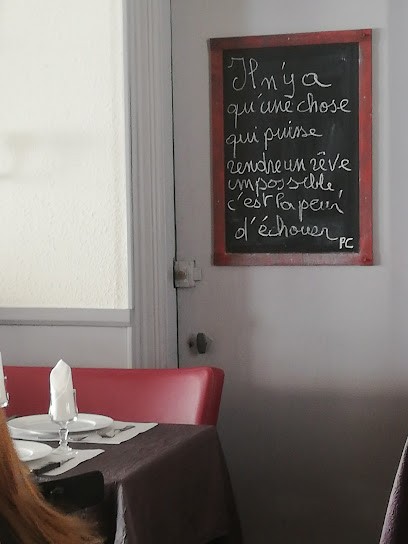 Il n'y a
qu'une chose
qui puisse
rendre un rêve
impossible,
c'est la peur
d'échouer
PC